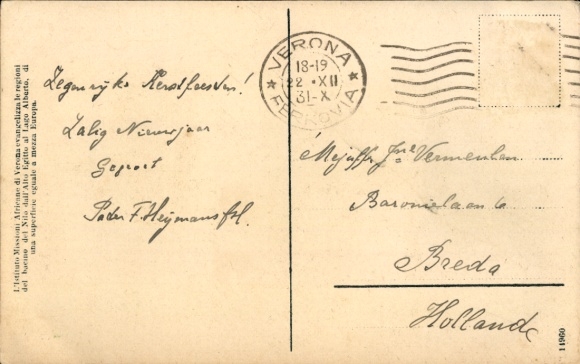 L'Istituto Missioni Africane di Verona evangelizza le regioni
del bacino del Nilo dall'Alto Egitto al Lago Alberto, di
una superficie eguale a mezza Europa.
Zegenrijke Kerstfeesten!
Zalig Nieuwjaar
Groet
Pater F. Heijmans fsc.
VERONA
18-19
22 · XII
31-X
FERROVIA
Mejuffr. Jne Vermeulen
Baronielaan 6
Breda
Holland
14960